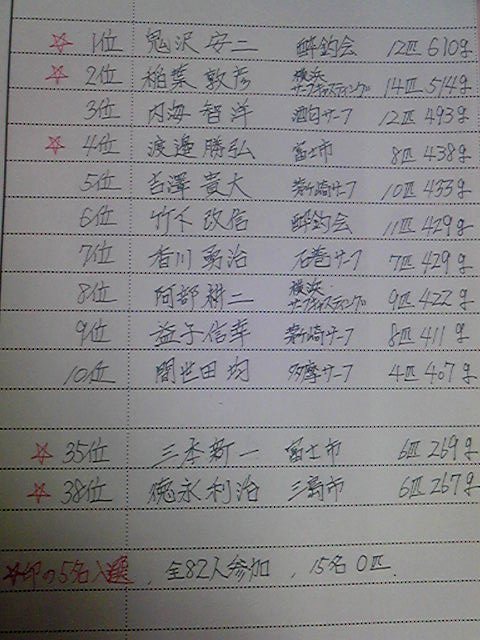 ☆ 1位 鬼沢安二 酔釣会 12匹 610g
☆ 2位 稲葉敦彦 横浜サーフキャスティング 14匹 514g
3位 内海智洋 酒白サーフ 12匹 493g
☆ 4位 渡邉勝弘 富士市 8匹 438g
5位 吉澤貴大 茅ヶ崎サーフ 10匹 433g
6位 竹下改信 酔釣会 11匹 429g
7位 香川勇治 石巻サーフ 7匹 429g
8位 阿部耕二 横浜サーフキャスティング 9匹 422g
9位 益子信幸 茅ヶ崎サーフ 8匹 411g
10位 間世田均 多摩サーフ 4匹 407g
☆ 35位 三本新一 富士市 6匹 269g
☆ 38位 徳永利治 三島市 6匹 267g
☆印の5名入選、全82人参加、15名0匹.